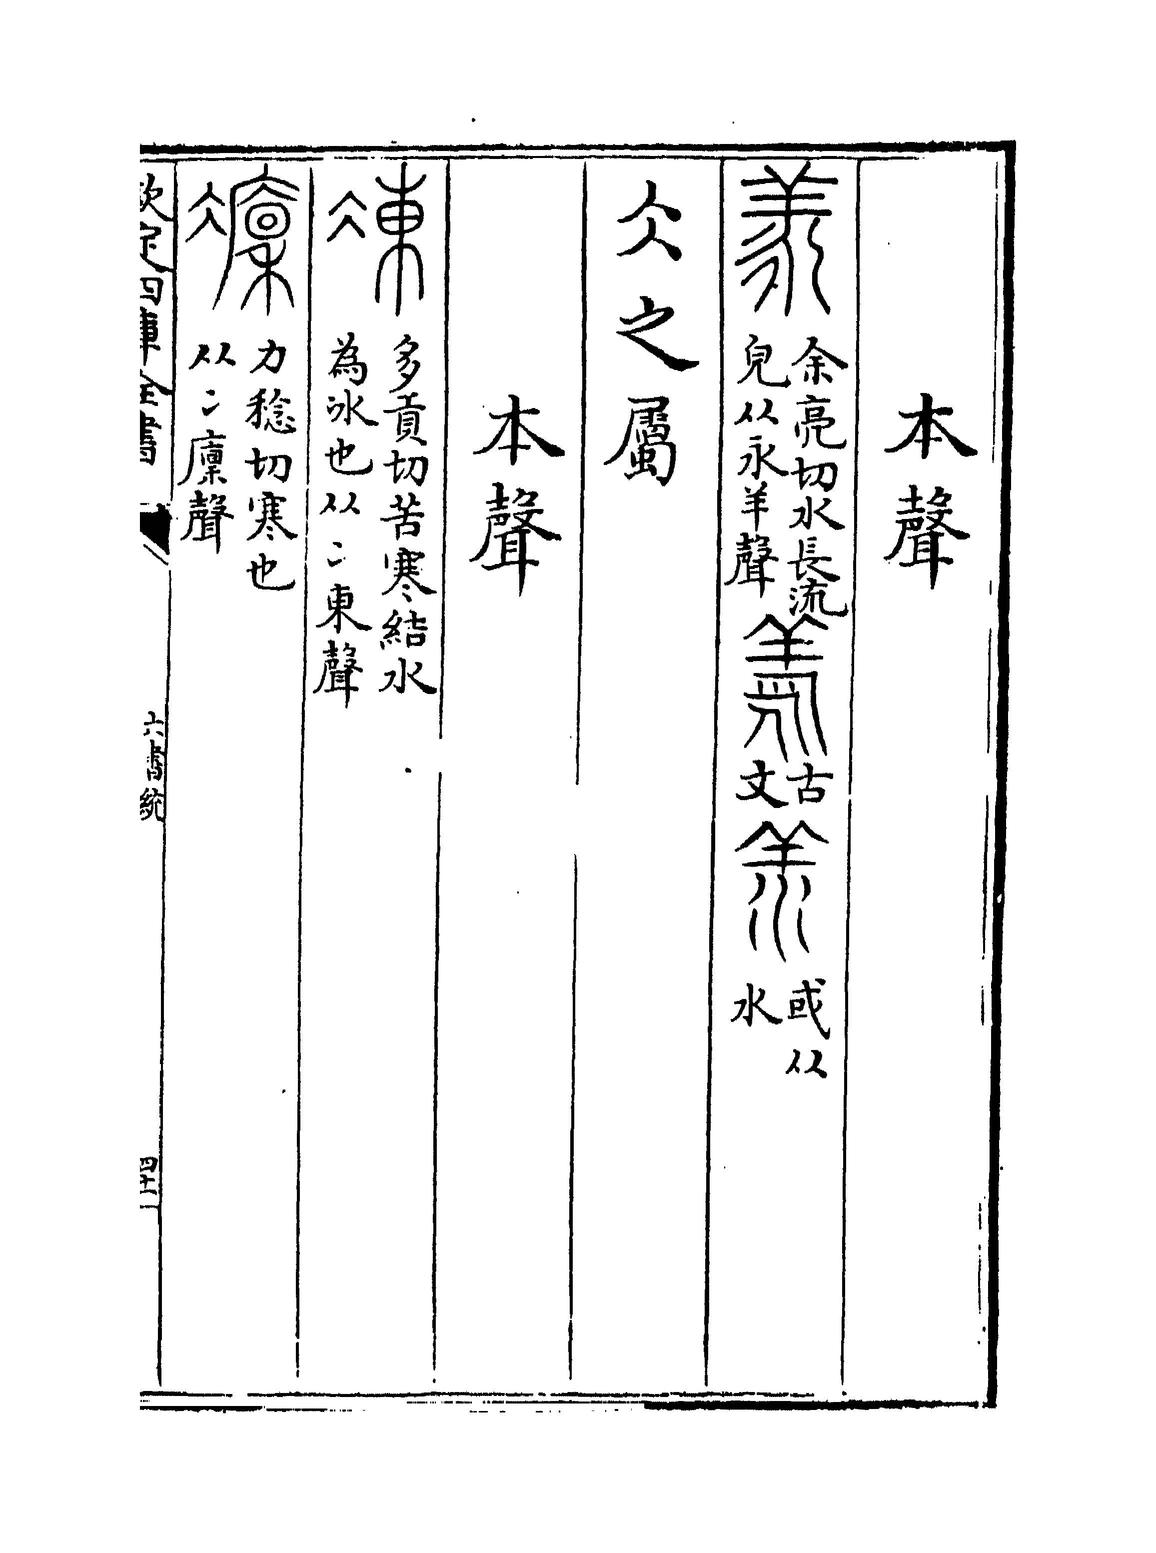 本聲
羕
余亮切水長流
皃从永羊聲
古文
或从水
仌之屬
本聲
凍
多貢切苦寒結水
為冰也从冫東聲
凜
力稔切寒也
从冫廩聲
欽定四庫全書
六書統